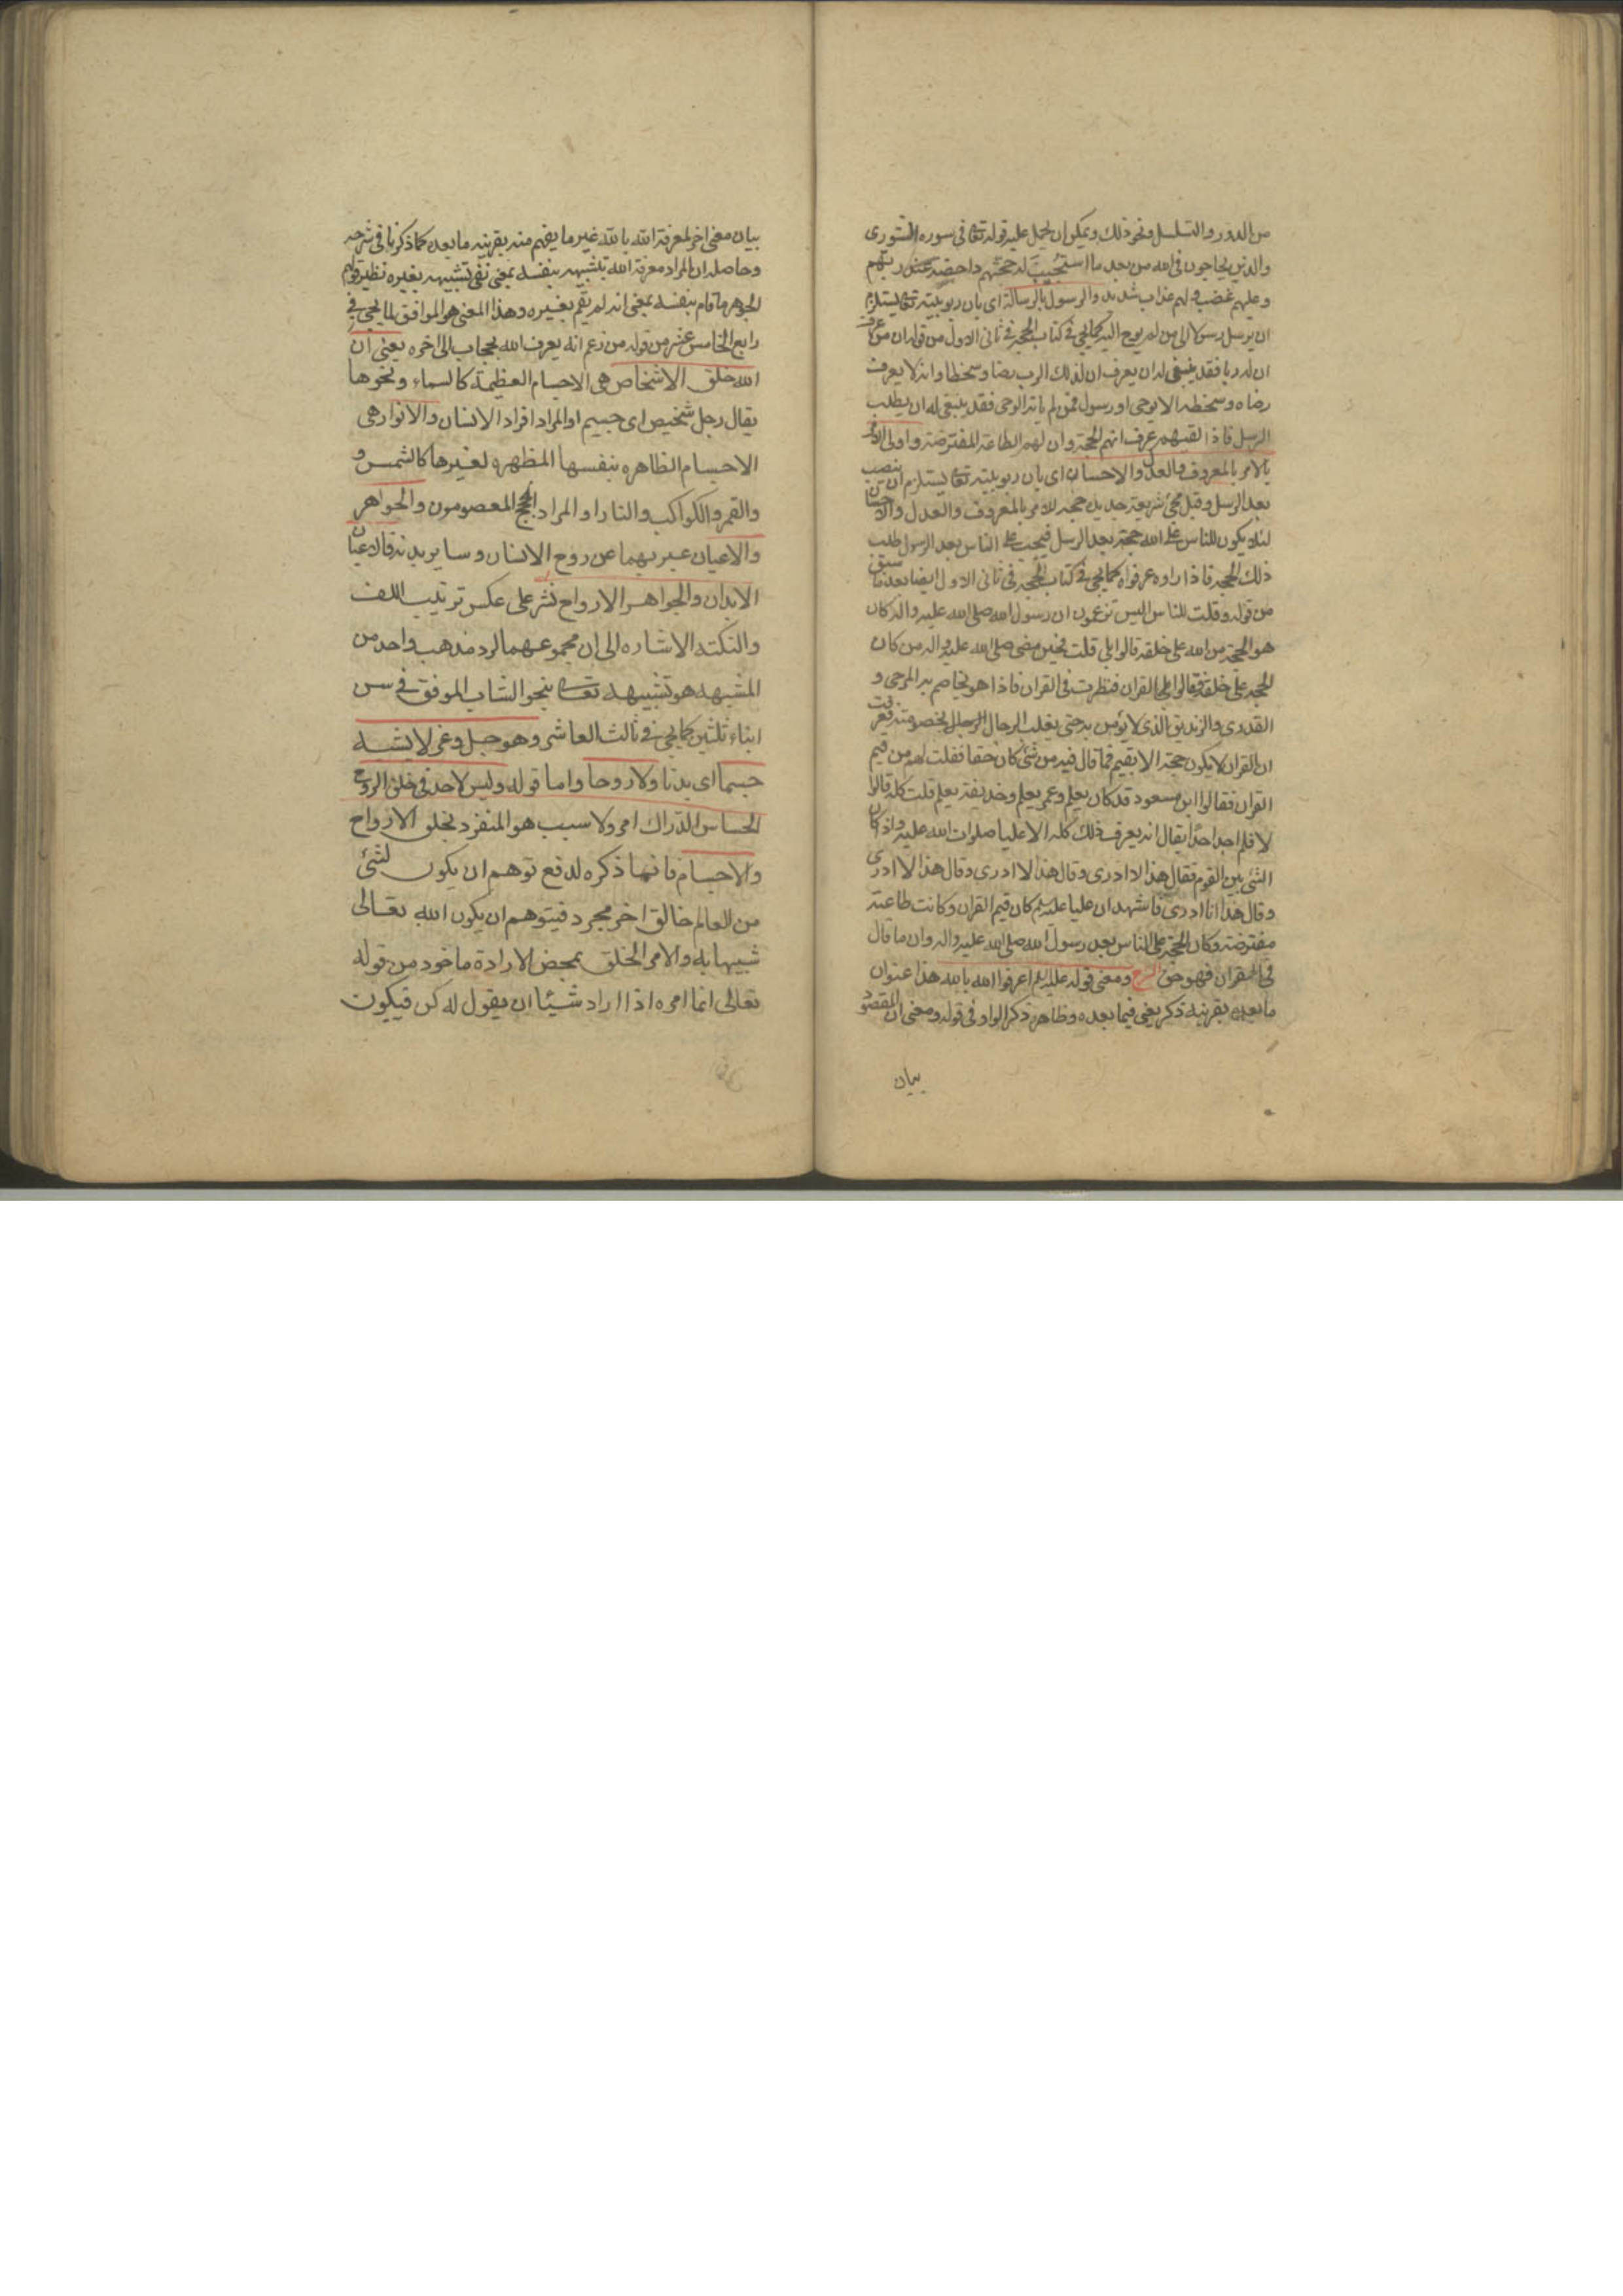 من الدور والتسلسل ونحو ذلك ويمكن ان يحمل عليه قوله تعا فى سورة الشورى
والذين يحاجون فى الله من بعد ما استجيب له حجتهم داحضة عند ربهم
وعليهم غضب ولهم عذاب شديد والرسول بالرسالة اى بان ربوبيته تعا يستلزم
ان يرسل رسولا الى من لم يوح اليه كما يجئ فى كتاب الحجة فى ثانى الاول من قوله ان من عرف
ان له ربا فقد ينبغى له ان يعرف ان لذلك الرب رضا وسخطا وانه لا يعرف
رضاه وسخطه الا بوحى او رسول فمن لم ياته الوحى فقد ينبغى له ان يطلب
الرسل فاذا لقيهم عرف انهم الحجة وان لهم الطاعة المفترضة واولى الامر
بالامر بالمعروف والعدل والاحسان اى بان ربوبيته تعا يستلزم ان ينصب
بعد الرسل وقبل مجئ شريعة جديدة حججه للامر بالمعروف والعدل والاحسان
لئلا يكون للناس على الله حجة بعد الرسل فيجب على الناس بعد الرسول طلب
ذلك الحجة فاذا راوه عرفواه كما يجئ فى كتاب الحجة فى ثانى الاول ايضا بعد ما سبق
من قوله وقلت للناس اليس تزعمون ان رسول الله صلى الله عليه واله كان
هو الحجة من الله على خلقه قالوا بلى قلت فحين مضى صلى الله عليه واله من كان
الحجة على خلقه فقالوا القران فنظرت فى القران فاذا هو يخاصم به المرجى و
القدرى والزنديق الذى لا يؤمن به حتى يغلب الرجال بخصومته فعرفت
ان القران لا يكون حجة الا بقيم فما قال فيه من شئ كان حقا فقلت لهم من قيم
القران فقالوا ابن مسعود قد كان يعلم وعمر يعلم وحذيفة يعلم قلت كله قالوا
لا فلم اجد احدا يقال انه يعرف ذلك كله الا عليا صلوات الله عليه واذا كان
الشئ بين القوم فقال هذا لا ادرى وقال هذا لا ادرى وقال هذا لا ادرى
وقال هذا انا ادرى فاشهد ان عليا عليه السلم كان قيم القران وكانت طاعته
مفترضة وكان الحجة على الناس بعد رسول الله صلى الله عليه واله وان ما قال
فى القران فهو حق الشرح ومعنى قوله عليه السلم اعرفوا الله بالله هذا عنوان
ما بعده بقرينة ذكر يعنى فيما بعده وظاهر ذكر الواو فى قوله ومعنى ان المقصود
بيان
بيان معنى اخر لمعرفة الله بالله غير ما يفهم منه بقرينة ما بعده كما ذكرنا فى شرحه
وحاصله ان المراد معرفة الله بتشبيهه بنفسه بمعنى نفى تشبيهه بغيره نظير قولهم
الجوهر ما قام بنفسه بمعنى انه لم يقم بغيره وهذا المعنى هو الموافق لما يجئ فى
رابع الخامس عشر من قوله من زعم انه يعرف الله بحجاب الى اخره يعنى ان
الله خلق الاشخاص هى الاجسام العظيمة كالسماء ونحوها
يقال رجل شخيص اى جسيم او المراد افراد الانسان والانوار هى
الاجسام الظاهره بنفسها المظهره لغيرها كالشمس و
والقمر والكواكب والنار او المراد الحجج المعصومون والجواهر
والاعيان عبر بهما عن روح الانسان وساير بدنه فالاعيان
الابدان والجواهر الارواح نشر على عكس ترتيب اللف
والنكته الاشاره الى ان مجموعهما لرد مذهب واحد من
المشبهه هو تشبيهه تعا بنحو الشاب الموفق فى سن
ابناء ثلثين كما يجئ فى ثالث العاشر وهو جل وعز لا يشبه
جسما اى بدنا ولا روحا واما قوله وليس لاحد فى خلق الروح
الحساس الدراك امر ولا سبب هو المنفرد بخلق الارواح
والاجسام فانما ذكره لدفع توهم ان يكون لشئ
من العالم خالق اخر مجرد فيتوهم ان يكون الله تعالى
شبيها به والامر الخلق بمحض الارادة ماخوذ من قوله
تعالى انما امره اذا اراد شيئا ان يقول له كن فيكون